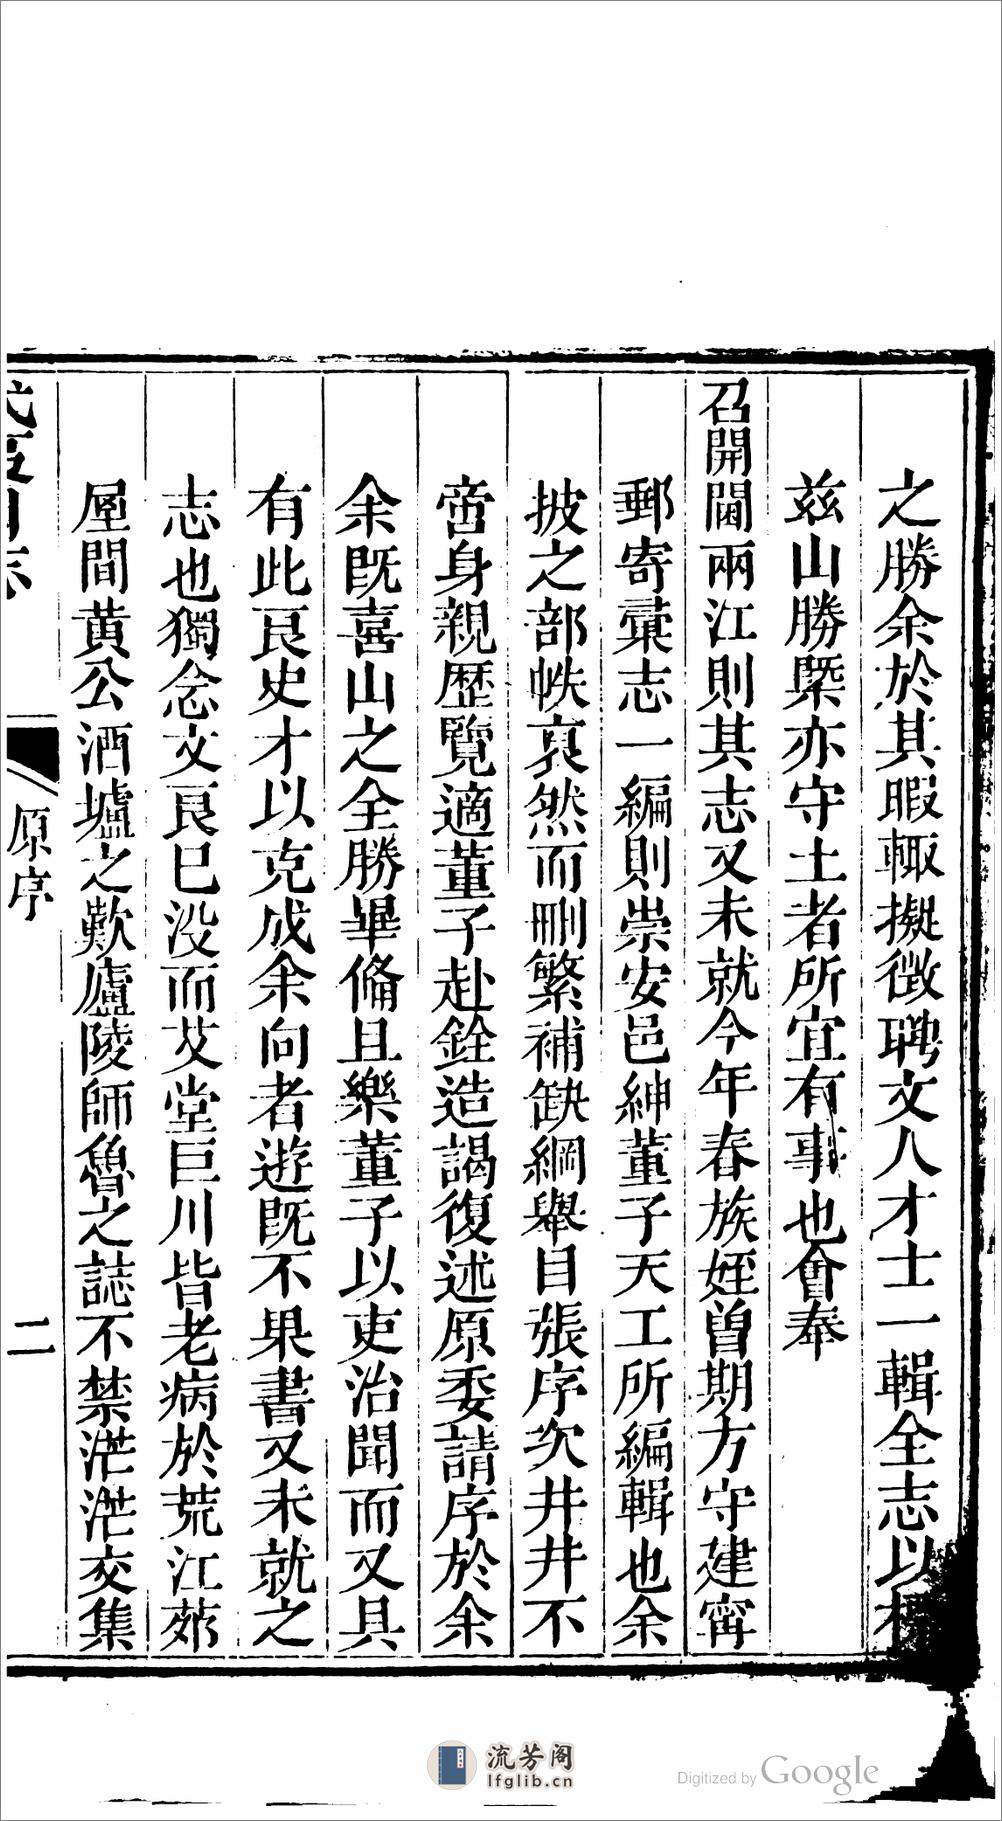 之勝余於其暇輙擬徵聘文人才士一輯全志以
茲山勝槩亦守土者所宜有事也會奉
召開閫兩江則其志又未就今年春族姪曽期方守建寗
郵寄彚志一編則崇安邑紳董子天工所編輯也余
披之部帙裒然而刪繁補缺綱舉目張序次井井不
啻身親歴覽適董子赴銓造謁復述原委請序於余
余既喜山之全勝畢備且樂董子以吏治聞而又具
有此良史才以克成余向者遊既不果書又未就之
志也獨念文良已没而艾堂巨川皆老病於荒江茆
屋間黄公酒壚之歎廬陵師魯之誌不禁茫茫交集
武夷山志
原序
二
流芳阁
lfglib.cn
Digitized by Google